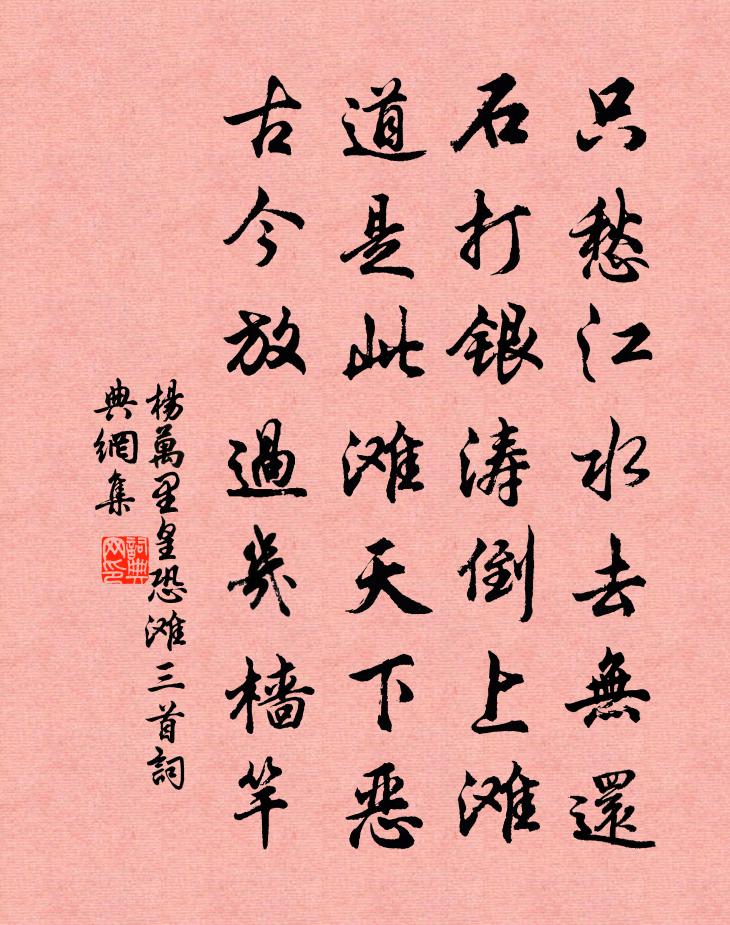 只愁江水去無還
石打銀涛倒上滩
道是此滩天下惡
古今放過幾檣竿
楊萬里皇恐滩三首詞
典網集
詞典
网印